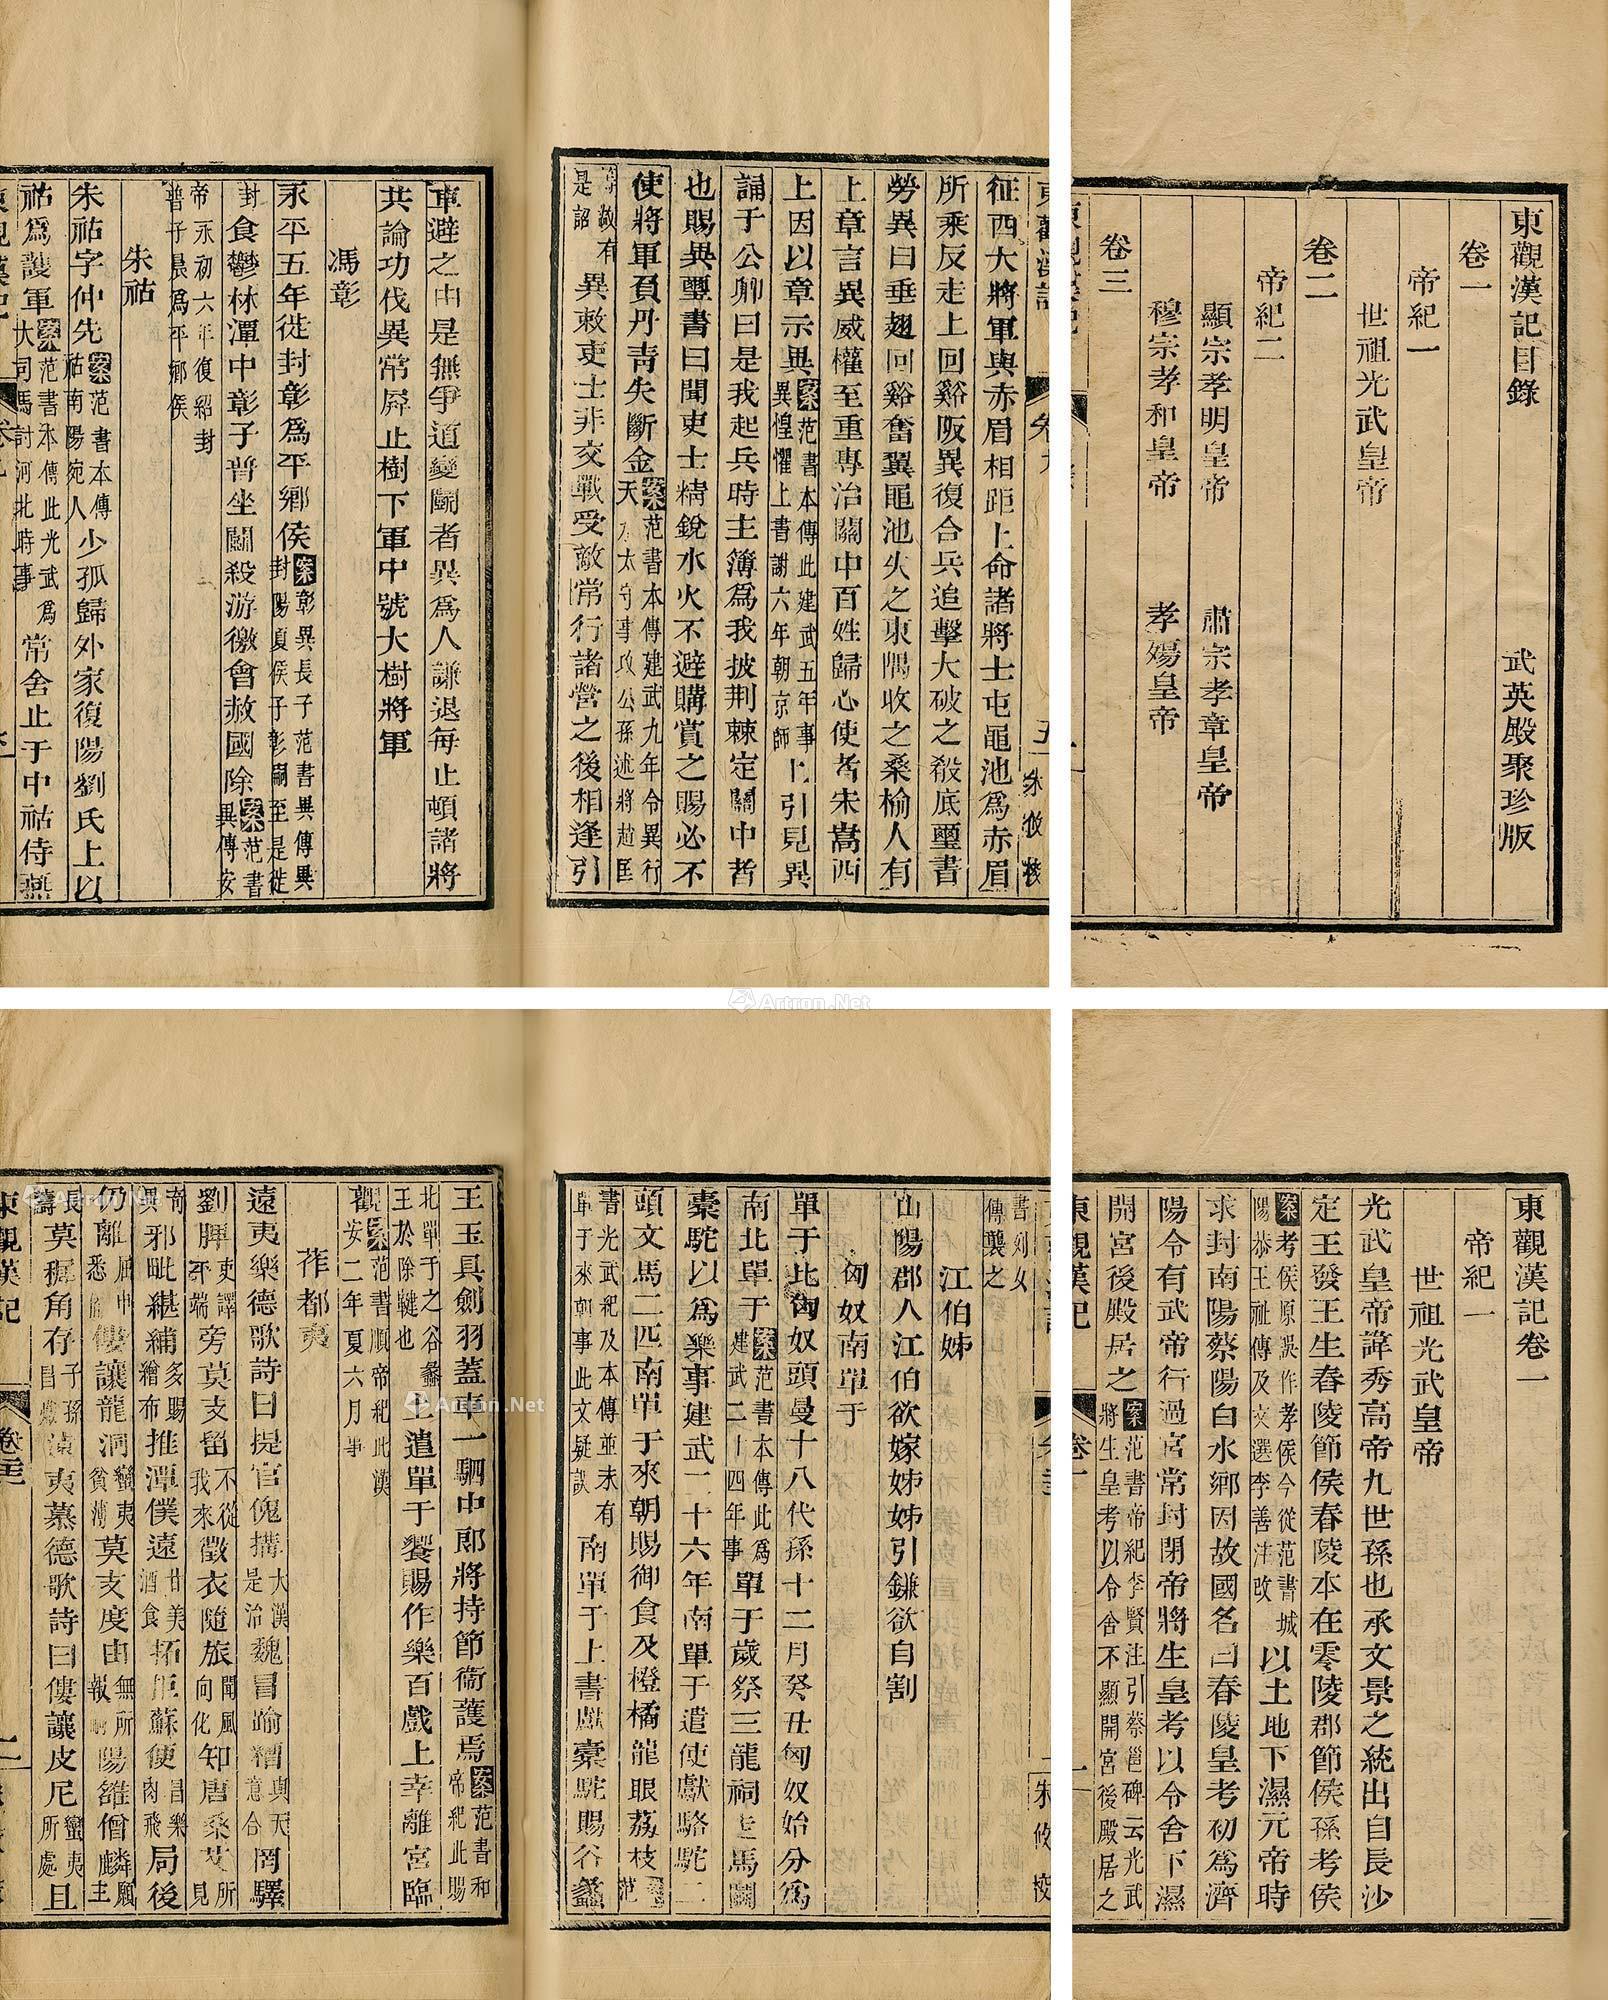 東觀漢記目錄　武英殿聚珍版
卷一
帝紀一
世祖光武皇帝
卷二
帝紀二
顯宗孝明皇帝　肅宗孝章皇帝
穆宗孝和皇帝　孝殤皇帝
卷三
東觀漢記
征西大將軍與赤眉相距上命諸將士屯黽池為赤眉
所乘反走上回谿阪異復合兵追擊大破之殽底璽書
勞異曰垂翅回谿奮翼黽池失之東隅收之桑榆人有
上章言異威權至重專治關中百姓歸心使者宋嵩西
上因以章示異案范書本傳此建武五年事
異惶懼上書謝六年朝京師上引見異
誦于公卿曰是我起兵時主簿為我披荆棘定關中者
也賜異璽書曰聞吏士精銳水火不避購賞之賜必不
使將軍負丹青失斷金案范書本傳建武九年令異行
天水太守事攻公孫述將趙匡
等故有
是詔異敕吏士非交戰受敵常行諸營之後相逢引
朱攸校
車避之由是無爭道變鬭者異為人謙退每止頓諸將
共論功伐異常屏止樹下軍中號大樹將軍
馮彰
永平五年徙封彰為平鄉侯案彰異長子范書異傳異
封陽夏侯子彰嗣至是徙
封食鬱林潭中彰子普坐鬭殺游徼會赦國除案范書
異傳安
帝永初六年復紹封
普子晨為平鄉侯
朱祜
朱祜字仲先案范書本傳
祜南陽宛人少孤歸外家復陽劉氏上以
祜為護軍案范書本傳此光武為
大司馬討河北時事常舍止于中祜侍燕
東觀漢記
東觀漢記卷一
帝紀一
世祖光武皇帝
光武皇帝諱秀高帝九世孫也承文景之統出自長沙
定王發王生舂陵節侯舂陵本在零陵郡節侯孫考侯
案考侯原誤作孝侯今從范書城
陽恭王祉傳及文選李善注改以土地下濕元帝時
求封南陽蔡陽白水鄉因故國名曰舂陵皇考初為濟
陽令有武帝行過宮常封閉帝將生皇考以令舍下濕
開宮後殿居之案范書帝紀李賢注引蔡邕碑云光武
將生皇考以令舍不顯開宮後殿居之
東觀漢記　卷一　一
書列女
傳襲之
江伯姊
山陽郡人江伯欲嫁姊姊引鎌欲自割
匈奴南單于
單于比匈奴頭曼十八代孫十二月癸丑匈奴始分為
南北單于案范書本傳此為
建武二十四年事單于歲祭三龍祠走馬鬭
橐駝以為樂事建武二十六年南單于遣使獻駱駝二
頭文馬二匹南單于來朝賜御食及橙橘龍眼荔枝案范
書光武紀及本傳並未有
單于來朝事此文疑誤南單于上書獻橐駝賜谷蠡
朱攸校
王玉具劍羽蓋車一駟中郎將持節衞護焉案范書和
帝紀此賜
北單于之谷蠡
王於除鞬也上遣單于饗賜作樂百戲上幸離宮臨
觀案范書順帝紀此漢
安二年夏六月事
莋都夷
遠夷樂德歌詩曰提官傀搆大漢
是治魏冒踰糟與天
意合罔驛
劉脾吏譯
平端旁莫支留不從
我來徵衣隨旅聞風
向化知唐桑艾所
見
奇
異邪毗𦃇𦅸多賜
繒布推潭僕遠甘美
酒食拓拒蘇便昌樂
肉飛局後
仍離屈申
悉備僂讓龍洞蠻夷
貧薄莫支度由無所
報嗣陽雒僧麟願
主
長
壽莫穉角存子孫
昌熾遠夷慕德歌詩曰僂讓皮尼蠻夷
所處且
東觀漢記　卷